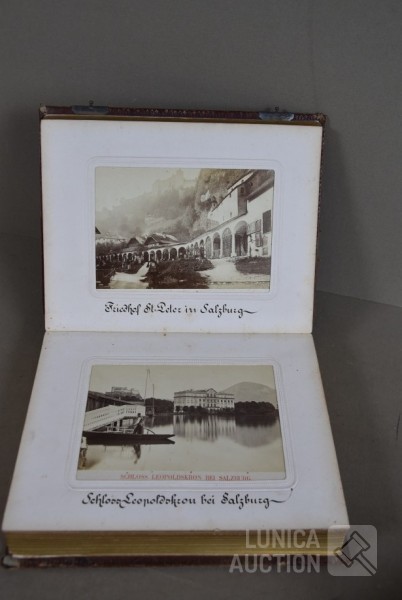 Friedhof St. Peter in Salzburg
SCHLOSS LEOPOLDSKRON BEI SALZBURG.
Schloss Leopoldskron bei Salzburg
LUNICA
AUCTION